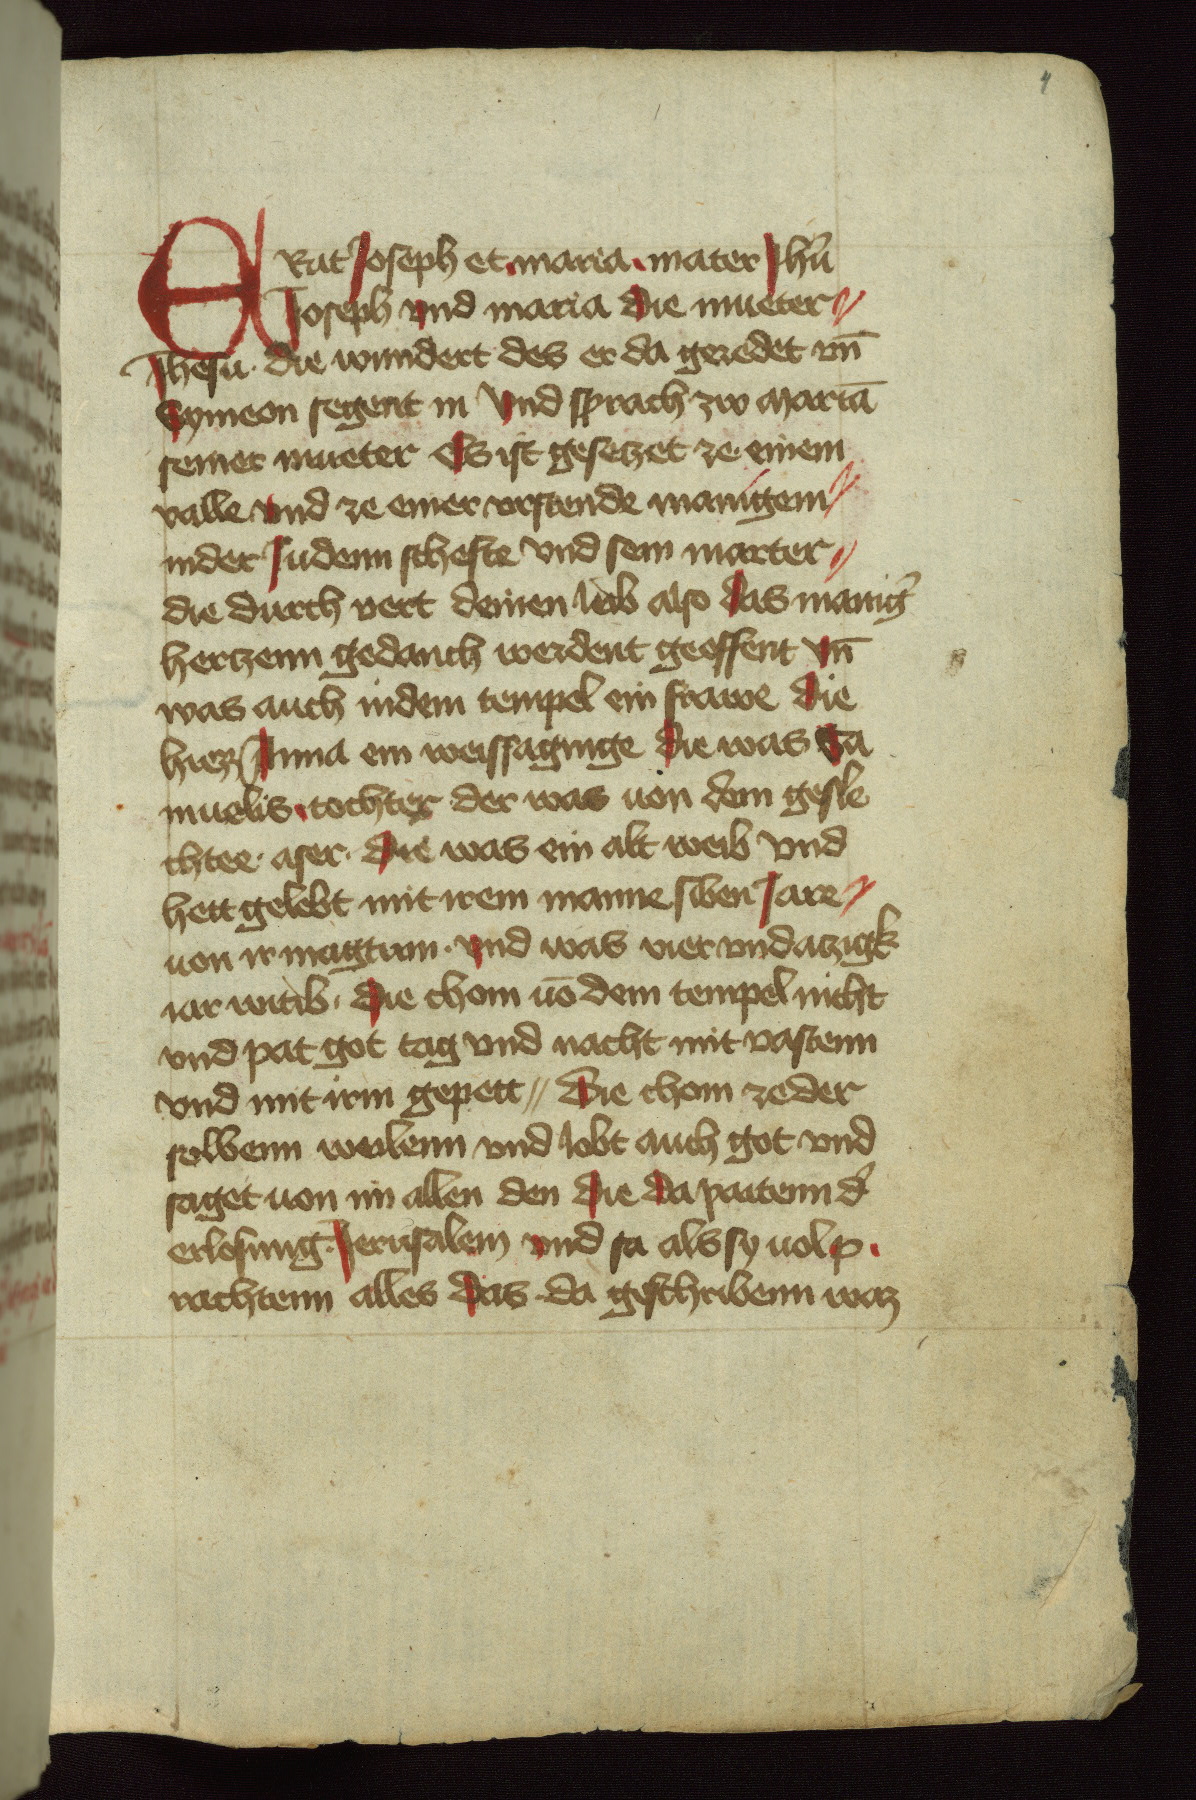 4
ERat Joseph et maria mater Jhū
Joseph vnd maria die mueter //
Jhesu. die wundert des er da geredet vn̄
Symeon segent in vnd sprach zw mariā
seiner mueter Es ist gesetzet ze einem
valle vnd ze einer vrstende manigem //
inder Judenn schefte vnd sein marter //
die durch vert deinen leib also das manig̛
hertzenn gedanch werdent geoffent vn̄
was auch indem tempel ein frawe die
hiez Anna ein weissaginge die was Sa
muelis. tochter der was uon dem gesle
chtee. aser. die was ein alt weib vnd
hett gelebt mit irem manne siben Jare //
uon ir magtum. vnd was vier vnd atzigk
iar witib. die chom uō dem tempel nicht
vnd pat got tag vnd nacht mit vastenn
vnd mit irm gepett // Die chom ze der
selbenn weilenn vnd lobt auch got vnd
saget uon im allen den die da paitenn d̛
erlosung. Jerusalem vnd sa als sy uolp.
rachtenn alles das. da geschribenn waz